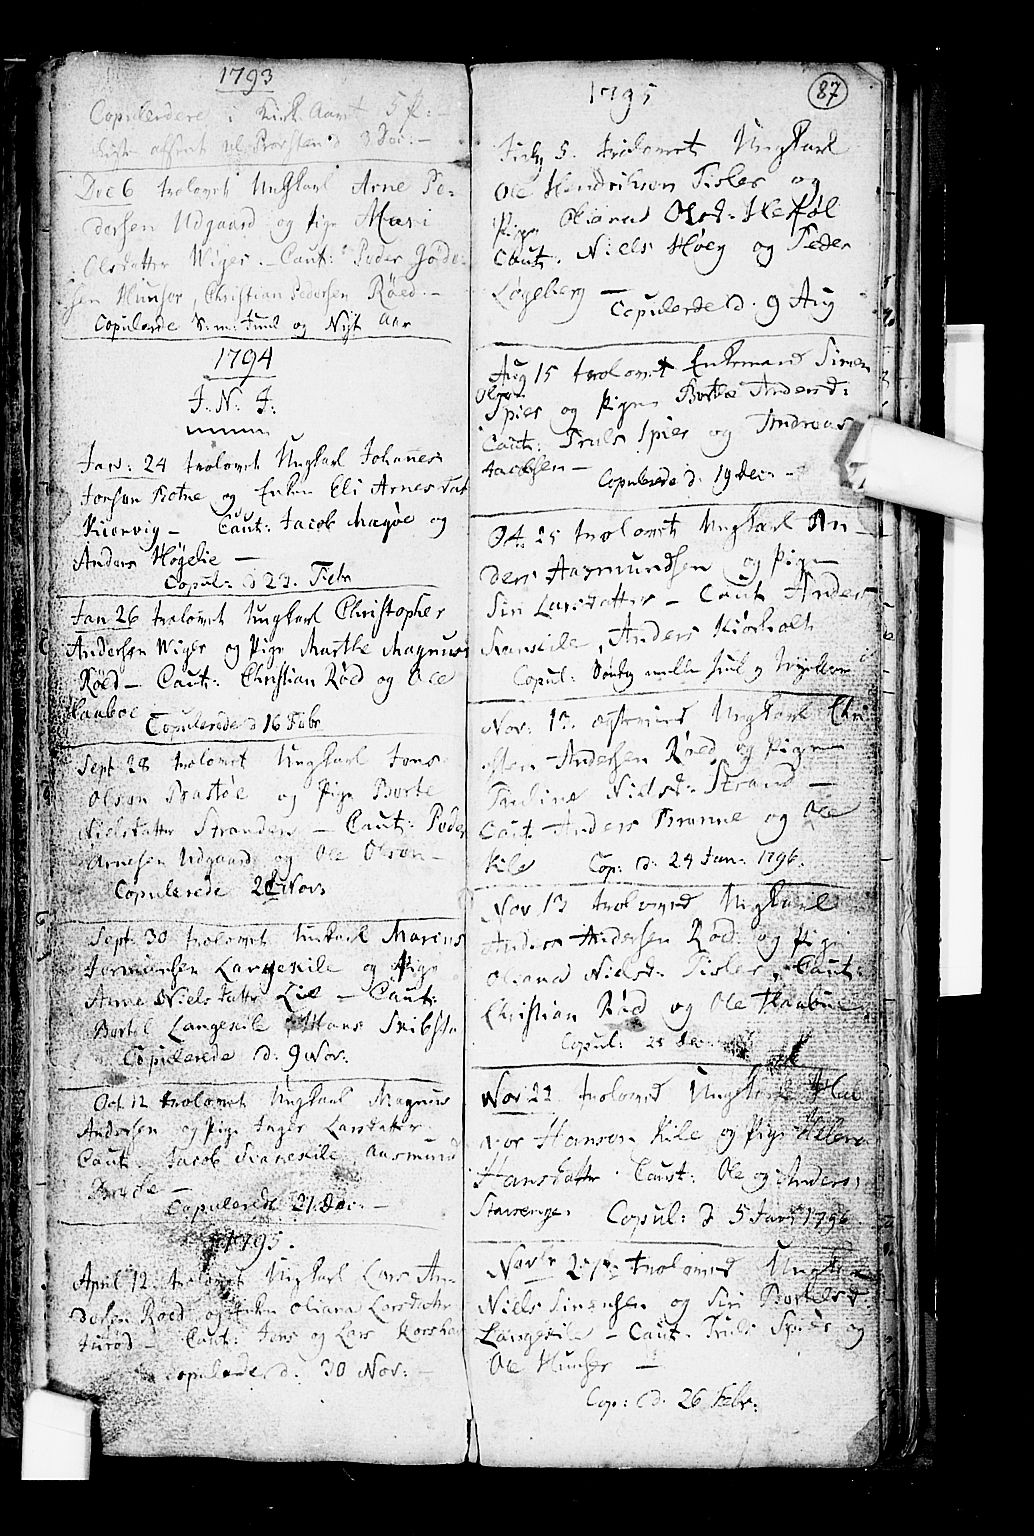 1793
Copulerdere i Kirk Aaret 5 p:
d 8 Dec: -
Dec 6 trolovet Ungkarl Arne Pe-
dersen Udgaard og Pige Mari
Olsdatter Wiger - Caut: Peder Gude-
sen Hunsør, Christian Pedersen Röed. -
Copulerde S. m: Juul og Nyt Aar
1794
J. N. J.
Jan: 24 trolovet Ungkarl Johannes
Jonson Botne og Enken Eli Arnesdat
Kiærvig - Caut: Jacob Magøe og
Anders Høgelie -
Copul: d 23. Febr
Jan 26 trolovet Ungkarl Christopher
Andersen Wiger og Pige Marthe Magnus
Röed - Caut: Christian Röed og Ole
Haaboe - Copulerede d 16 Febr
Sept 28 trolovet Ungkarl Jens
Olsen Brastøe og Pige Berte
Nielsdatter Stranden - Caut: Peder
Arnesen Udgaard og Ole Olsen -
Copulerede 2 Nov:
Sept. 30 trolovet Ungkarl Marius
Langekile og Pige
Anne Nielsdattr Lie - Caut:
Bertel Langekile, Hans
Copulerede d: 9 Nov:
Oct 12 trolovet Ungkarl Magnus
Andersen og Pige Inger Larsdatter
Caut. Jacob Aasmund
Copulerede 21. Dec: -
1795.
April 12. trolovet Ungkarl Lars An-
dersen Röed og Enken Oliana Larsdattr
Caut: Jens og Lars
Copulerede d. 30 Nov: -
87
1795
July 5. trolovet Ungkarl
Ole Hendrikson Tisler og
Pige Oliana Olsd:
Caut. Niels Høeg og Peder
Løgeberg - Copulerede d. 9 Aug
Aug 15 trolovet Enkemand Simen
Olsen
Spier og Pigen Berthe Andersd:
Caut: Truls Spier og Andreas
Jacobsen - Copulerede d: 19 Dec: -
Oct. 25 trolovet Ungkarl An
ders Aasmundsen og Pigen
Siri Larsdatter - Caut Anders
, Anders Kiørholt
Copul: Søndg mellm Juul og Nytaar
Nov. 13. Ungkarl Chri
sten Andersen Röed og Pigen
Pauline Nielsd: Strand -
Caut Anders Brønne og Ole
Kile Cop: d: 24 Jan: 1796.
Nov 13 trolovet Ungkarl
Anders Andersen Röd og Pige
Oliana Nielsd: Tisler, Caut:
Christian Röd og Ole Haaboe
Copul: 28 Dec:
Nov 22 trolovet Ungkarl Hal
vor Hanson Kile og Pige Helena
Hansdattr. Caut: Ole og Anders
Stavenge. Copul: d 5 Jan: 1796
Novbr trolovet Ungkarl
Niels Simensen og Siri Bertelsd:
Langekile - Caut. Truls Spier og
Ole Hunser -
Cop: d. 26 Febr.